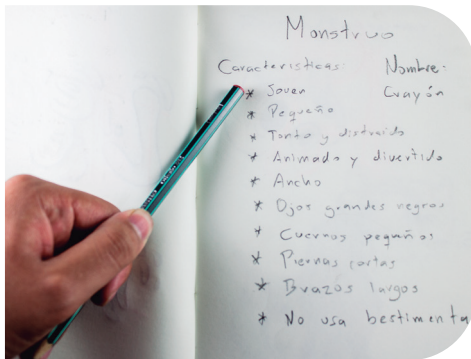 Monstruo
Características: Nombre:
* Joven Crayón
* Pequeño
* Tonto y distraido
* Animado y divertido
* Ancho
* Ojos grandes negros
* Cuernos pequeños
* Piernas cortas
* Brazos largos
* No usa bestimenta